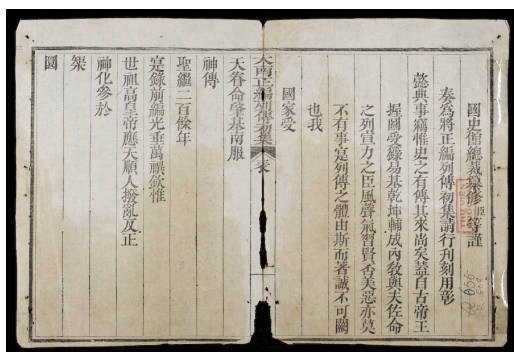 國史館總裁纂修臣等謹
奏爲將正編列傳初集請行刊刻用彰
懿典事竊惟史之有傳其來尚矣蓋自古帝王
握圖受籙易基乾坤輔成內敎與夫佐命
之列宣力之臣風聲氣習賢否美惡亦莫
不有事寔列傳之體由斯而著誠不可闕
也我
國家受
大南正編列傳初集 表
天眷命肇基南服
神傳
聖繼二百餘年
嘉錄前編光垂萬禩欽惟
世祖高皇帝應天順人撥亂反正
神化參於
圖